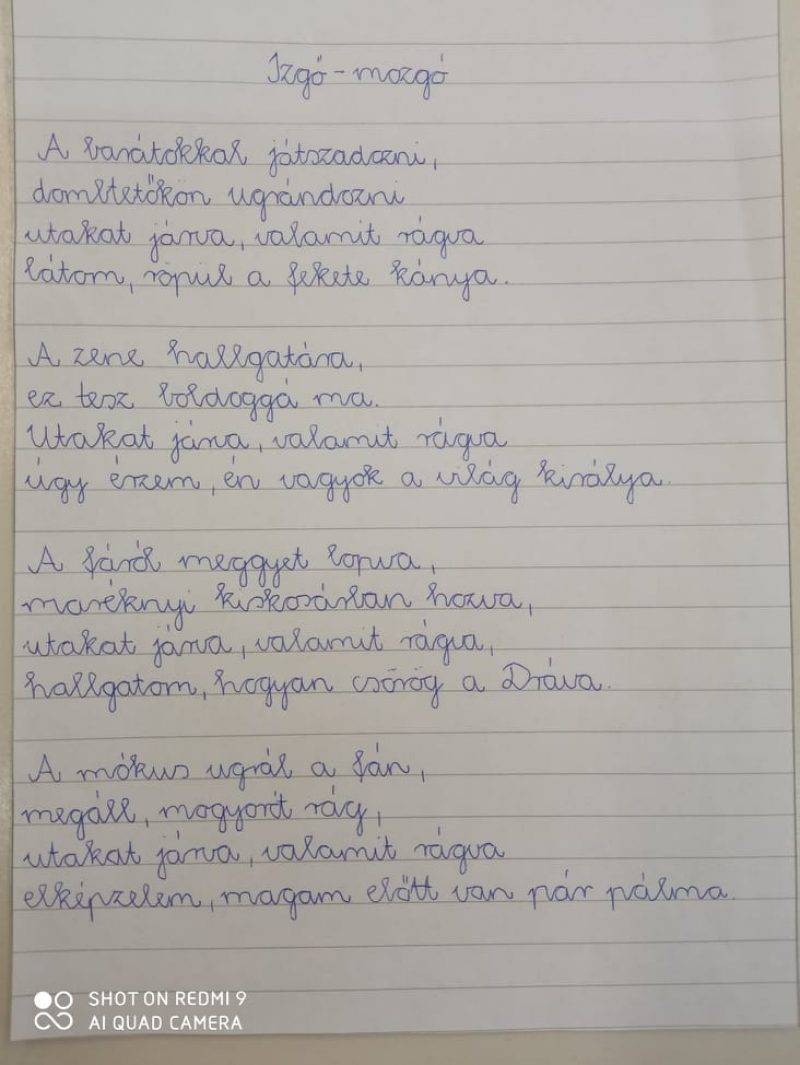 Izgő-mozgó
A barátokkal játszadozni,
dombtetőkön ugrándozni
utakat járva, valamit rágva
látom, röpül a fekete kánya.
A zene hallgatára,
ez tesz boldoggá ma.
Utakat járva, valamit rágva
úgy érzem, én vagyok a világ királya.
A fáról meggyet lopva,
maréknyi kiskosárban hozva,
utakat járva, valamit rágva,
hallgatom, hogyan csörög a Dráva.
A mókus ugrál a fán,
megáll, mogyorót rág,
utakat járva, valamit rágva
elképzelem, magam előtt van pár pálma.
SHOT ON REDMI 9
AI QUAD CAMERA